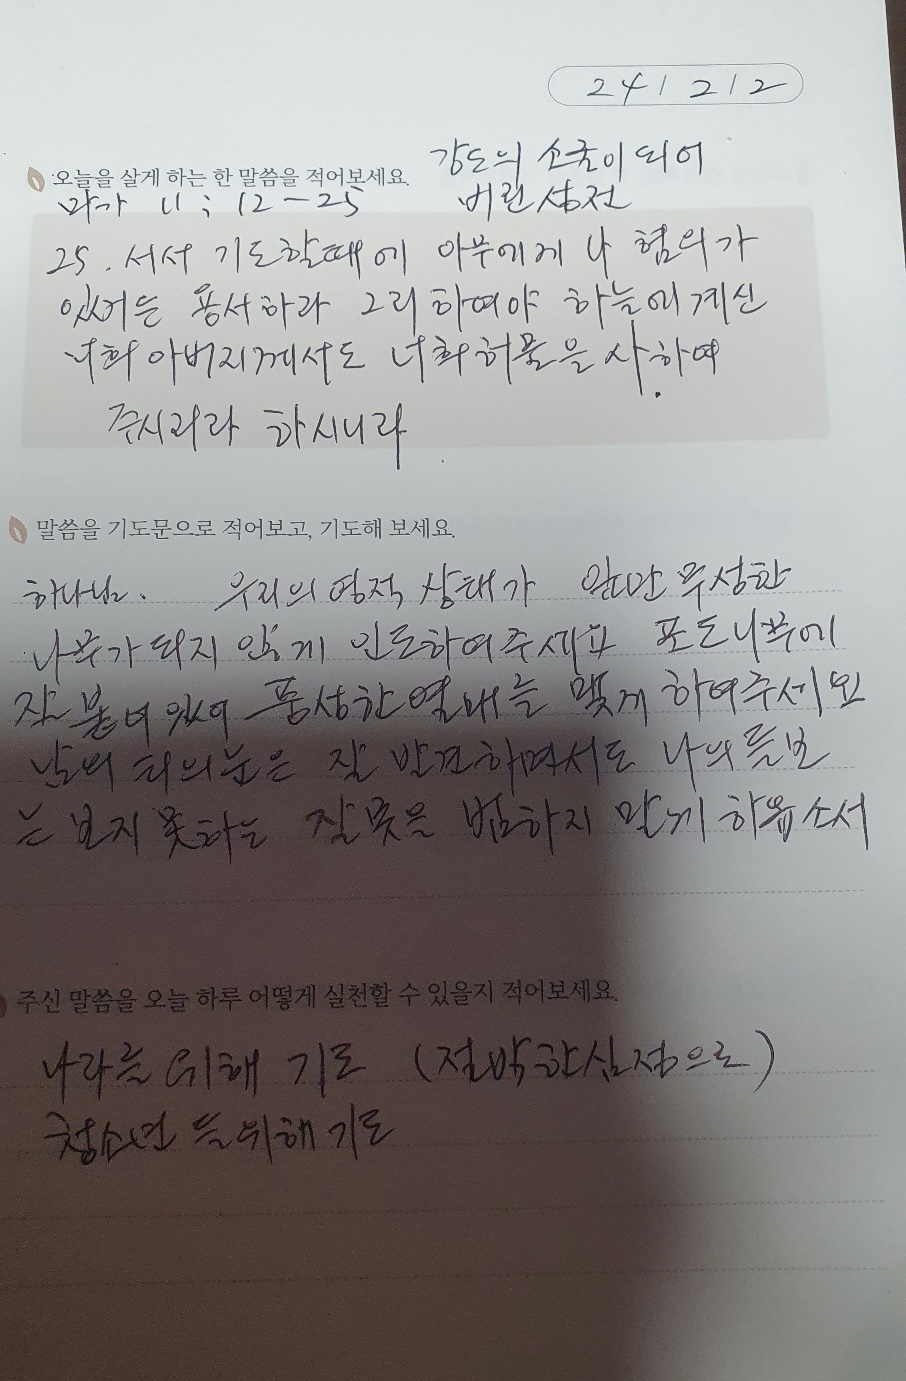 241212
강도의 소굴이 되어
오늘을 살게 하는 한 말씀을 적어보세요.
마가 11 ; 12 - 25 버린 성전
25. 서서 기도할때에 아무에게나 혐의가
있거든 용서하라 그리하여야 하늘에 계신
너희 아버지께서도 너희 허물을 사하여
주시리라 하시니라
말씀을 기도문으로 적어보고, 기도해 보세요.
하나님. 우리의 영적 상태가 잎만 무성한
나무가 되지 않게 인도하여주세요 포도나무에
잘 붙어 있어 풍성한 열매를 맺게 하여주세요
남의 티의눈은 잘 발견하면서도 나의 들보
는 보지 못하는 잘못을 범하지 말게 하옵소서
주신 말씀을 오늘 하루 어떻게 실천할 수 있을지 적어보세요.
나라를 위해 기도 (절박한심정으로)
청소년 들위해기도